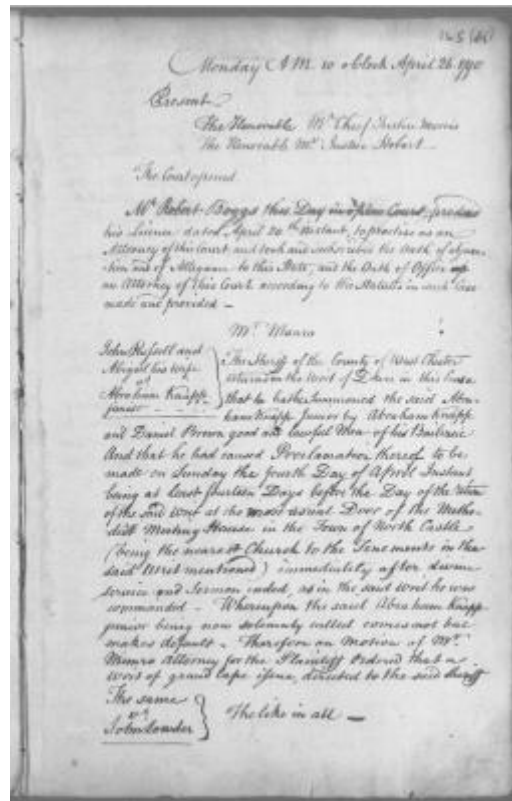 Monday A.M. 10 oClock April 26. 1790
Present
The Honorable Mr. Chief Justice Morris
The Honorable Mr. Justice Hobart
The Court opened
Mr. Robert Boggs this Day in open Court produces
his Licence dated April 24th Instant, to practise as an
Attorney of this Court and took and subscribed the Oath of
and of Allegiance to this State, and the Oath of Office
an Attorney of this Court according to the Statutes in such Case
made and provided —
Mr. Munro
John Russell and
Abigail his Wife
vs
Abraham Knapp
junior
The Sheriff of the County of West Chester
returns on the Writ of Dower in this Cause
that he hath Summoned the said Abra-
ham Knapp Junior by Abraham Knapp
and Daniel Brown good and lawful Men of his Bailiwic
And that he had caused Proclamation thereof to be
made on Sunday the fourth Day of April Instant
being at least fourteen Days before the Day of the return
of the said Writ at the most usual Door of the Metho-
dist Meeting House in the Town of North Castle
(being the nearest Church to the Tenements in the
said Writ mentioned) immediately after divine
service and Sermon ended, as in the said Writ he was
commanded - Whereupon the said Abraham Knapp
junior being now solemnly called comes not but
makes default - Therefore on Motion of Mr.
Munro Attorney for the Plaintiff Ordered that a
Writ of grand Cape issue, directed to the said Sheriff
The same
vs
John
The like in all —